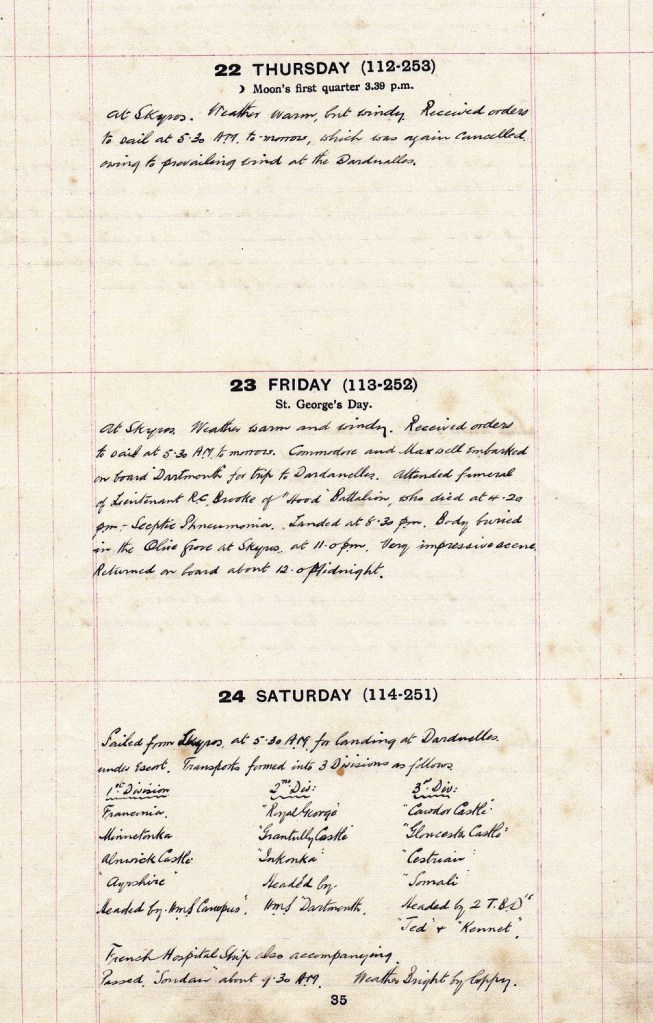 22 THURSDAY (112-253)
☽ Moon's first quarter 3.39 p.m.
At Skyros. Weather warm, but windy Received orders
to sail at 5-30 AM. to-morrow, which was again cancelled.
owing to prevailing wind at the Dardnalles.
23 FRIDAY (113-252)
St. George's Day.
At Skyros. Weather warm and windy. Received orders
to sail at 5-30 AM. to morrow. Commodore and Maxwell Embarked
on board "Dartmouth" for trip to Dardanelles. Attended funeral
of Lieutenant R.C. Brooke of "Hood" Battalion, who died at 4-20
pm - Sceptic Phneumonia. Landed at 8-30 pm. Body buried
in the Olive Grove at Skyros, at 11-0 pm. Very impressive scene.
Returned on board about 12-0 Midnight.
24 SATURDAY (114-251)
Sailed from Skyros, at 5-30 A.M. for landing at Dardnelles.
under Escort. Transports formed into 3 Divisions as follows
1st Division 2nd Div: 3rd Div:
Franconia. "Royal George" "Cawdor Castle"
Minnetonka "Grantully Castle" "Gloucester Castle"
Alnwick Castle "Inkonka" "Cestrian"
"Ayrshire" Headed by "Somali"
Headed by HMS Canopus". HMS "Dartmouth. Headed by 2 T.B.D"s
"Jed" & "Kennet".
French Hospital Ship also accompanying.
Passed "Soudan" about 9-30 AM. Weather Bright by Coppy.
35